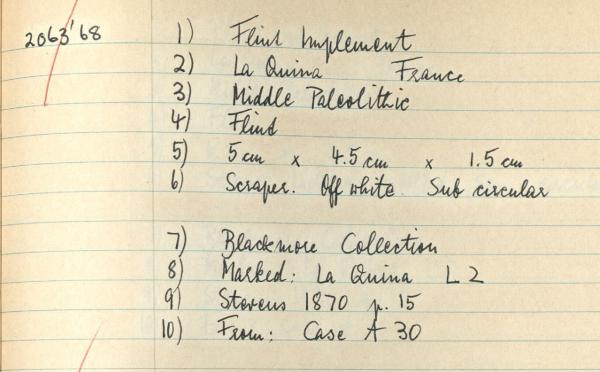 2063'68 1) Flint Implement
2) La Quina France
3) Middle Paleolithic
4) Flint
5) 5 cm x 4.5 cm x 1.5 cm
6) Scraper. Off white. Sub circular
7) Blackmore Collection
8) Marked: La Quina L 2
9) Stevens 1870 p. 15
10) From: Case A 30